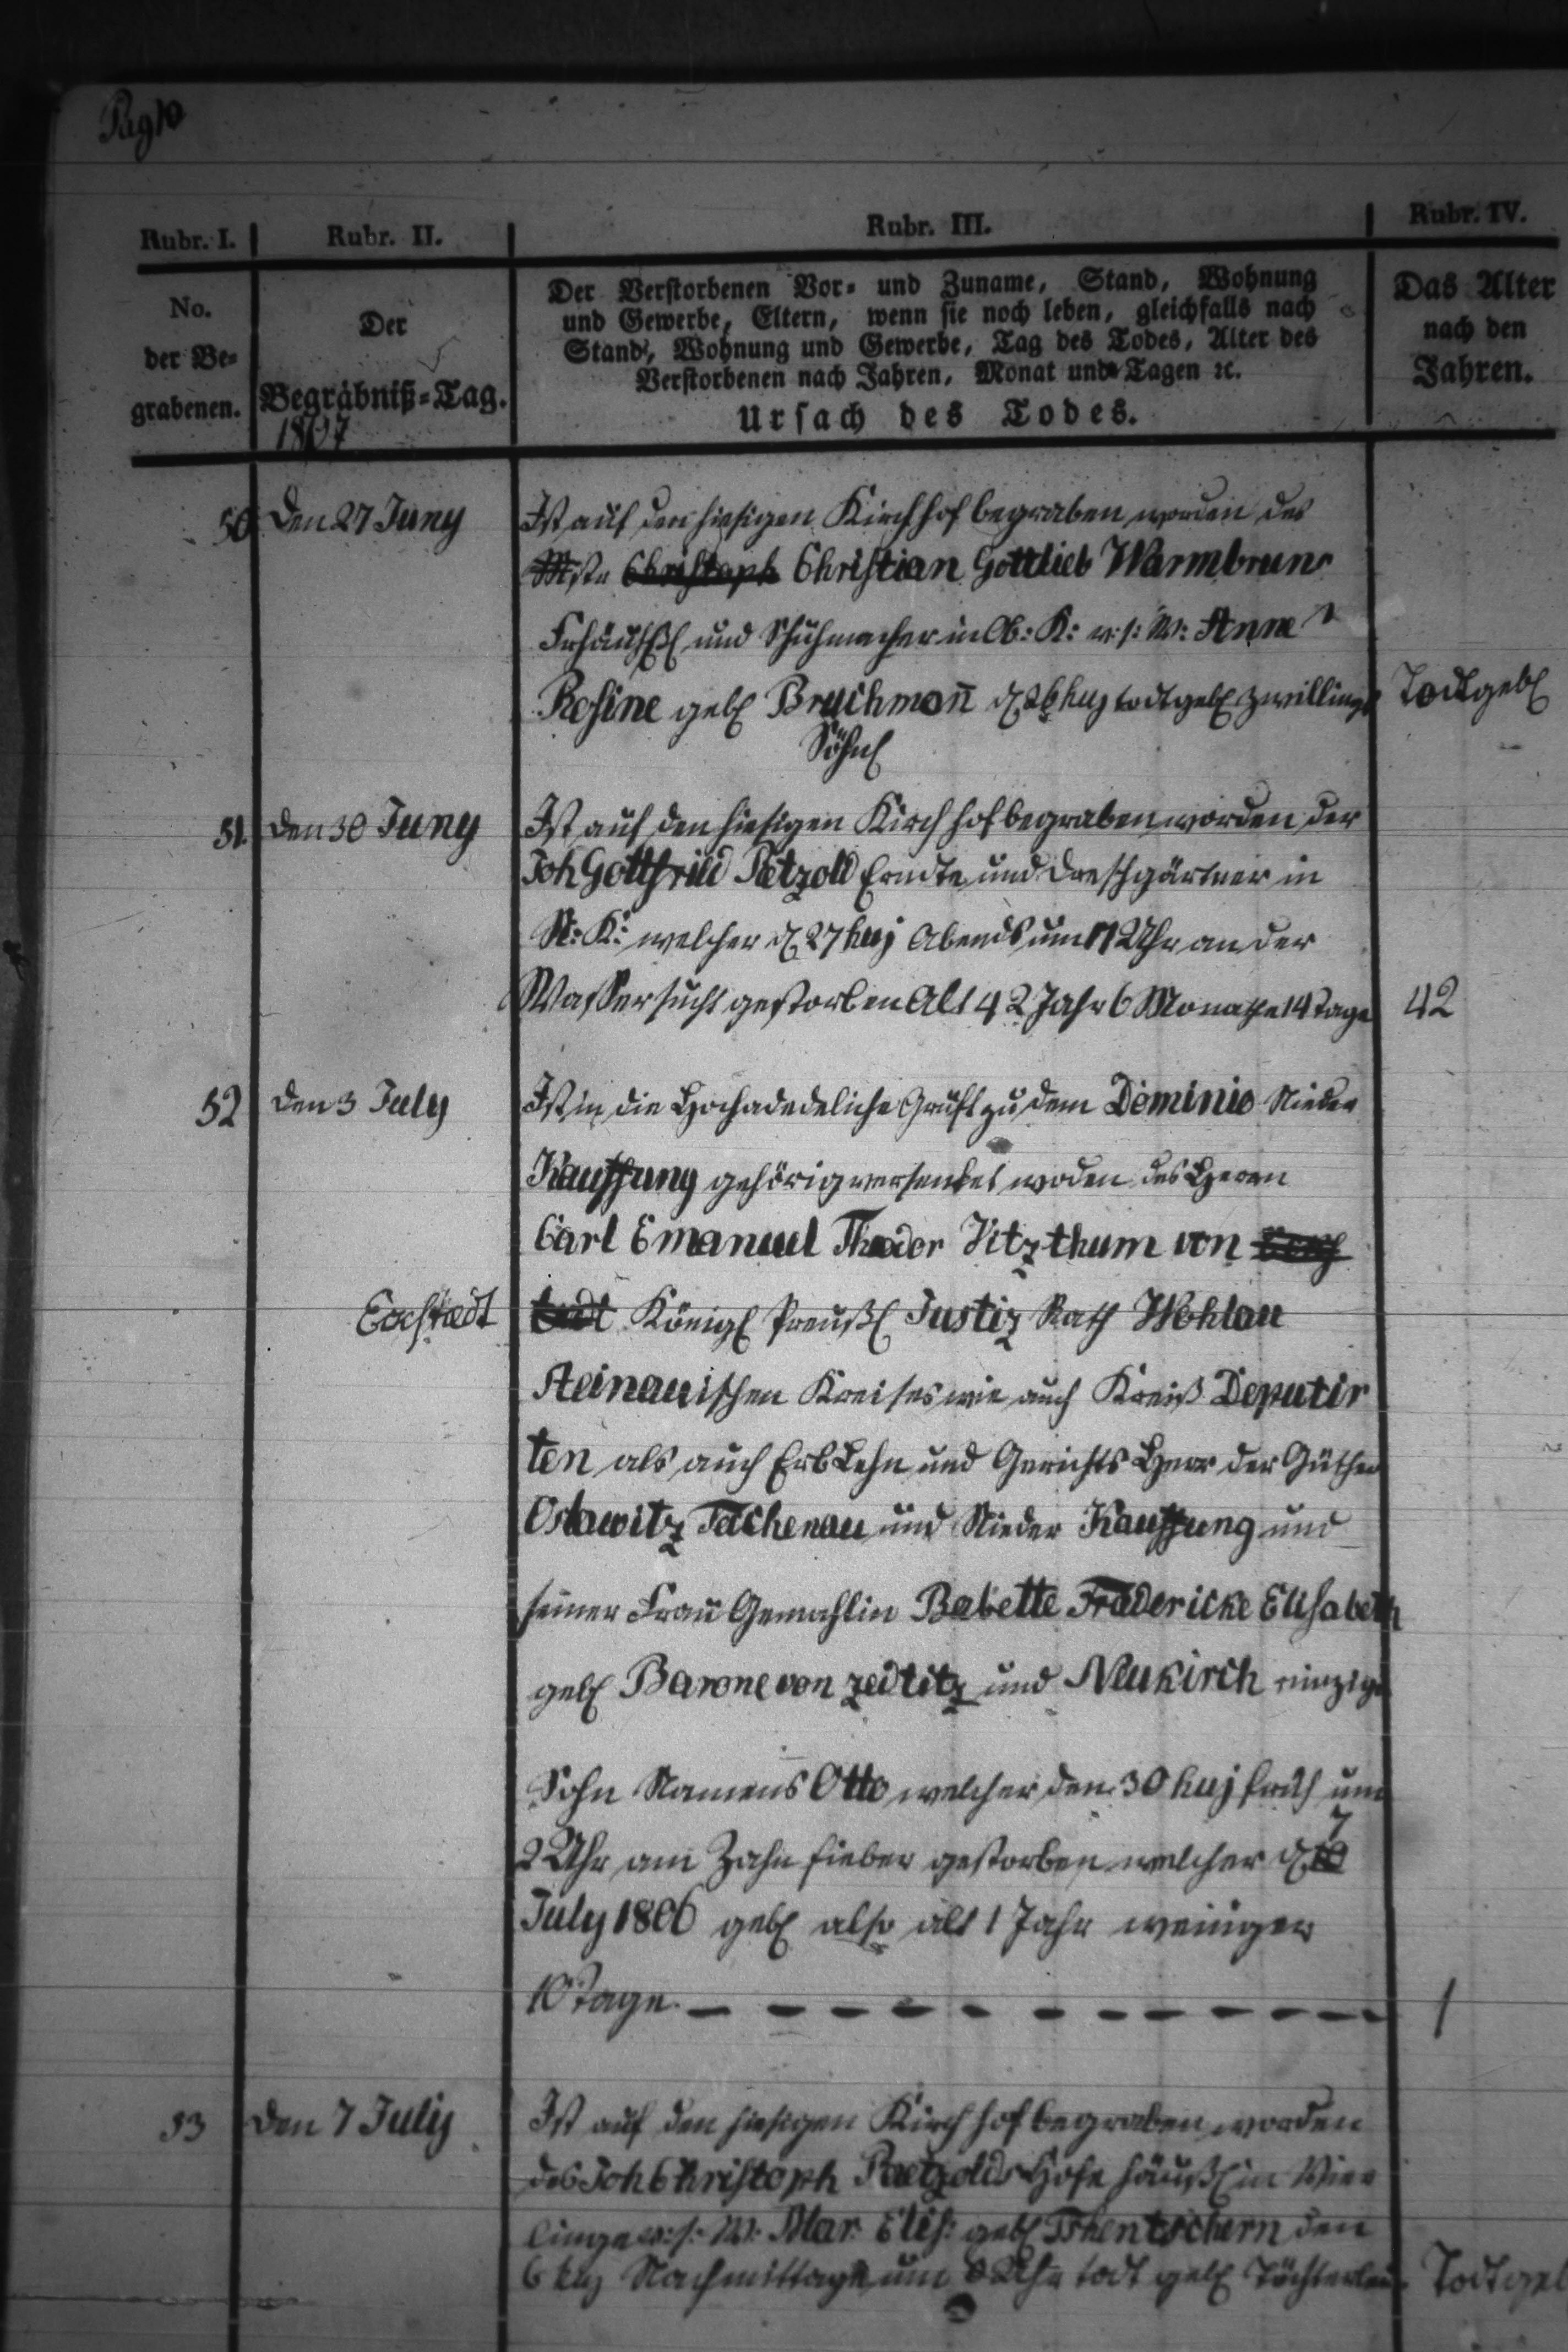 Pag 10
Rubr. I. Rubr. II. Rubr. III. Rubr. IV.
No. der Be-grabenen.
Der Begräbniß-Tag.
1807
Der Verstorbenen Vor- und Zuname, Stand, Wohnung
und Gewerbe, Eltern, wenn sie noch leben, gleichfalls nach
Stand, Wohnung und Gewerbe, Tag des Todes, Alter des
Verstorbenen nach Jahren, Monat und Tagen ꝛc.
Ursach des Todes.
Das Alter
nach den
Jahren.
50 den 27 Juny Ist auf den hiesigen Kirchhof begraben worden des
Mstr Christoph Christian Gottlieb Warmbrun
und Schuhmacher in Ob: K: v: s: W: Anne
Rosine geb Bruchmon̄ d 26 huj todtgeb Zwillings Todtgeb
Söhne
51. den 30 Juny Ist auf den hiesigen Kirchhof begraben worden der
Joh Gottfried Pätzold Erndte und Dreschgärtner in
N: K: welcher d 27 huj Abends um 11 Uhr an der
Wassersucht gestorben Alt 42 Jahr 6 Monathe 14 Tage 42
52 den 3 July Ist in die Hochadedeliche Gruft zu dem Dominio Nieder
Kauffung gehörig versenket woden des Herrn
Carl Emanuel Theodor Vitzthum von
Eckstædt Königl Preußl Justiz Rath Wohlau
Steinauischen Kreises wie auch Kreiß Deputir
ten als auch Erb Lehn und Gerichts Herr der Güther
und Nieder Kauffung und
seiner Frau Gemahlin Babette Frädericke Elisabeth
geb Barone von Zedlitz und Neukirch einzige
Sohn Namens Otto welcher den 30 huj früh um
7
2 Uhr am Zahnfieber gestorben welcher d 10
July 1806 geb also alt 1 Jahr weniger
10 Tage. 1
53 den 7 July Ist auf den hiesigen Kirchhof begraben worden
des Joh Christoph Paetzolds Hofe Häußl in
v: s: W: Mar: Elis: geb Tshentschern den
6 huj Nachmittags um 8 Uhr todt geb Töchterlein Todtgeb